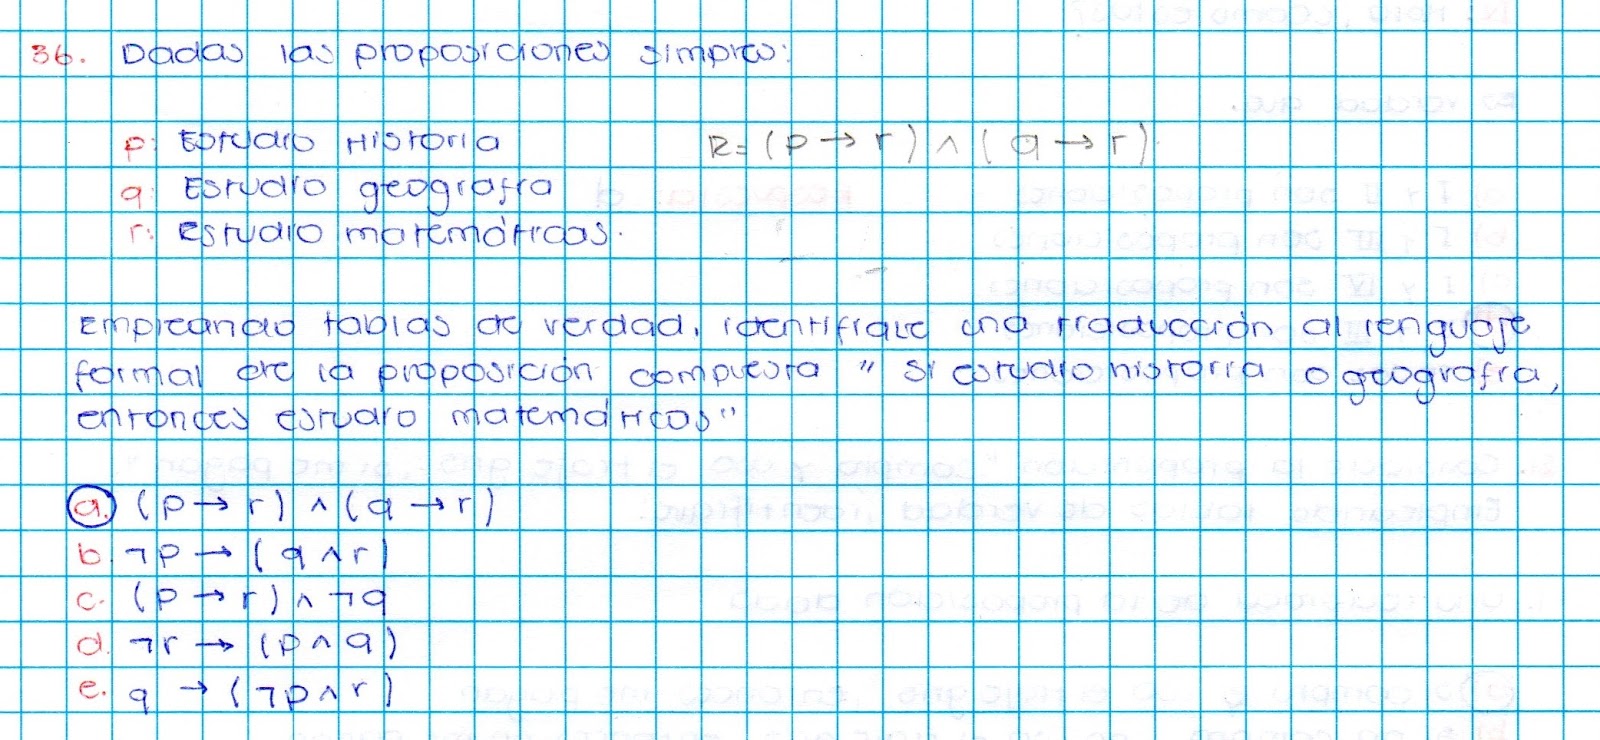 36. Dadas las proposiciones simples:
p: Estudio Historia R= (p → r) ∧ (q → r)
q: Estudio geografía
r: Estudio matemáticas.
Empleando tablas de verdad, identifique una traducción al lenguaje
formal de la proposición compuesta " Si estudio historia o geografía,
entonces estudio matemáticas"
a. (p → r) ∧ (q → r)
b. ¬p → (q ∧ r)
c. (p → r) ∧ ¬q
d. ¬r → (p ∧ q)
e. q → (¬p ∧ r)